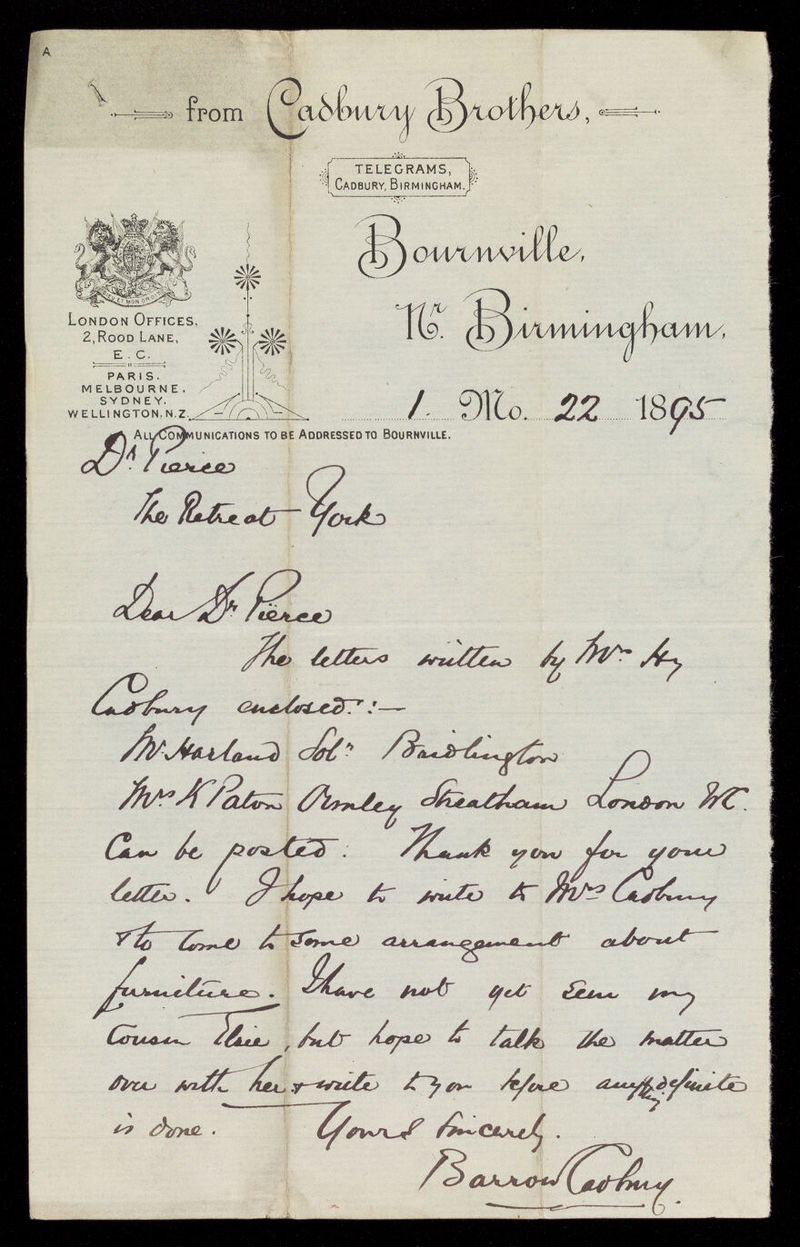 A
from Cadbury Brothers,
TELEGRAMS,
CADBURY, BIRMINGHAM.
Bournville,
Nr. Birmingham,
LONDON OFFICES,
2, ROOD LANE,
E.C.
PARIS.
MELBOURNE.
SYDNEY.
WELLINGTON, N.Z.
1. Mo. 22 1895
ALL COMMUNICATIONS TO BE ADDRESSED TO BOURNVILLE.
Dr. Pierce
The Retreat York
Dear Dr Pierce
The letters written by Mrs Hy
Cadbury enclosed :—
Mr Harland Solr. Bridlington
Mrs K Paton Ormley Streatham London WC.
Can be posted. Thank you for your
letter. I hope to write to Mrs Cadbury
& to come to some arrangement about
furniture. I have not yet seen my
Cousin Elsie, but hope to talk the matter
over with her & write to you before anything definite
is done. Yours Sincerely.
Barrow Cadbury.